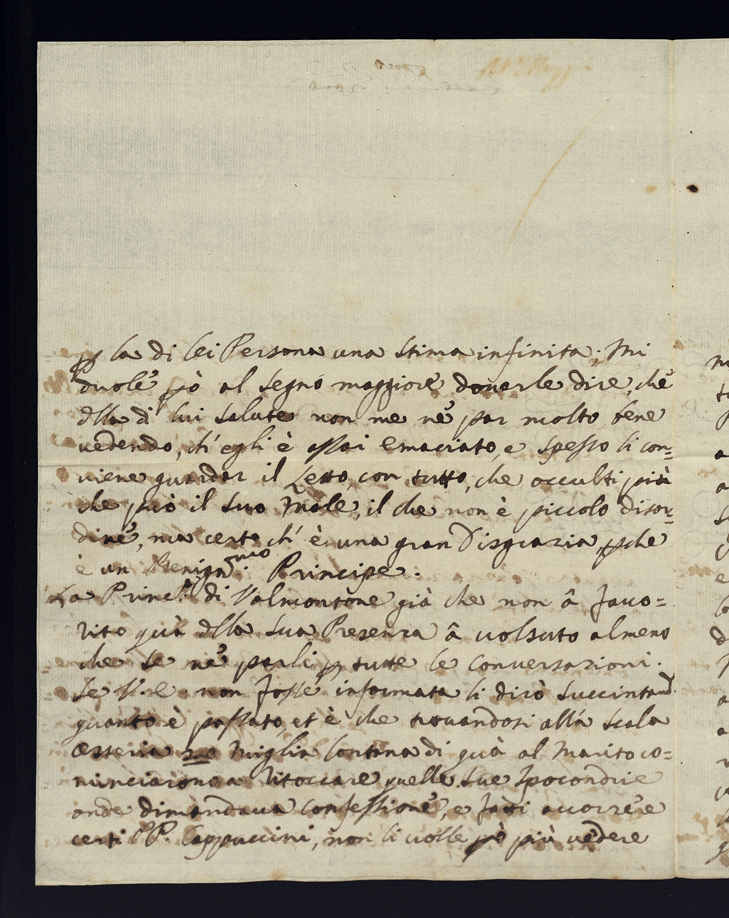 p la di lei Persona una stima infinita; mi
duole pò al segno maggiore doverle dire, che
dlla di lui salute non me ne par molto bene
vedendo, ch'egli è assai emaciato, e spesso li con=
viene guardar il Letto, con tutto, che occulti più
che può il suo Male, il che non è piccolo disor=
dine, ma certo ch'è una gran Disgrazia, pche
è un Benignmo Principe.
La Princ. di Valmontone già che non â favo=
rito quà dlla sua Presenza â volsuto almeno
che se ne parli p tutte le conversazioni.
Se V. E. non fosse informata li dirò succintamte
quanto è passato, et è che trovandosi alla Scala
Osteria 20 miglia lontana di quà al Marito co=
minciarono a ritoccare quelle sue Ipocondrie
onde dimandava Confessione, e fatti accorrere
certi PP. Cappuccini, non li volle pò più vedere